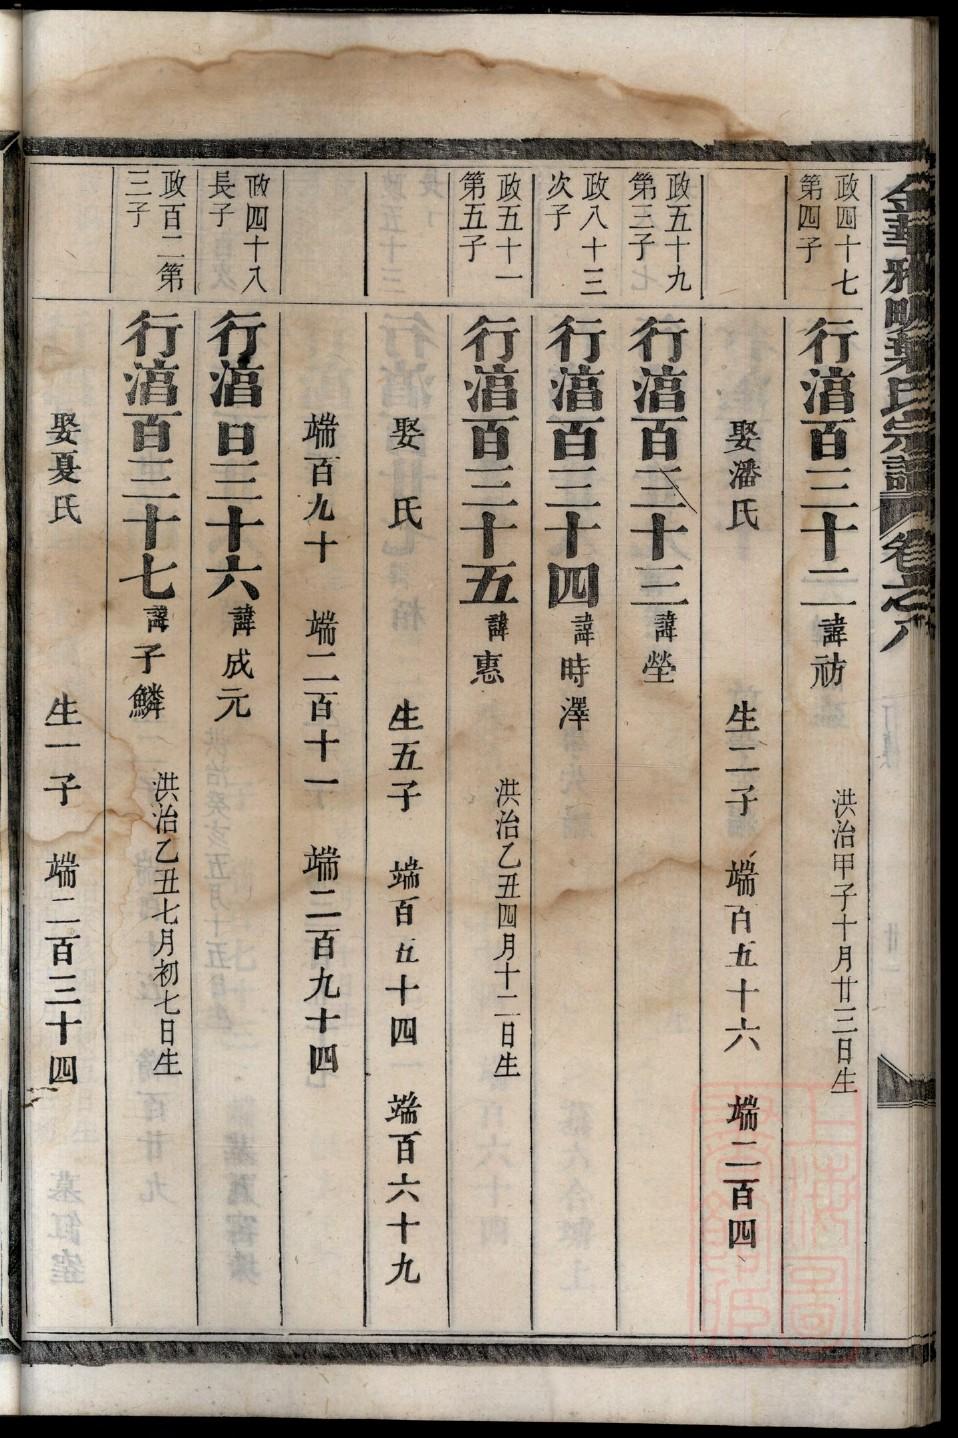 金華雅畈葉氏宗譜 卷之八
政四十七
第四子
行湻百三十二 諱祊 洪治甲子十月廿三日生
娶潘氏 生二子 端百五十六 端二百四
政五十九
第三子
行湻百三十三 諱瑩
政八十三
次子
行湻百三十四 諱時澤
政五十一
第五子
行湻百三十五 諱惠 洪治乙丑四月十二日生
娶 氏 生五子 端百五十四 端百六十九
端百九十 端二百十一 端二百九十四
政四十八
長子
行湻百三十六 諱成元
政百二第
三子
行湻百三十七 諱子鱗 洪治乙丑七月初七日生
娶夏氏 生一子 端二百三十四